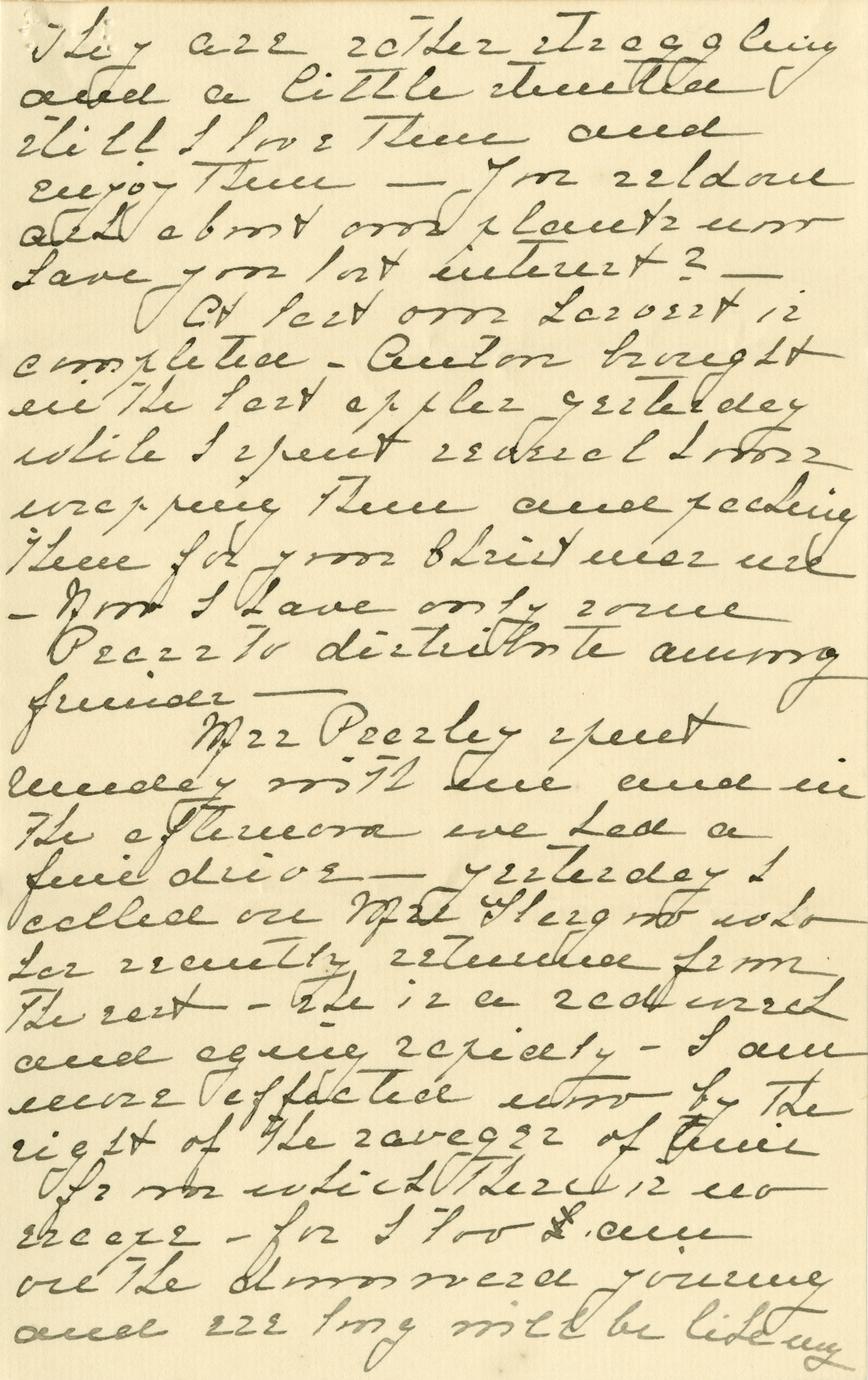 They are rather straggling
and a little stunted
still I love them and
enjoy them — You seldom
ask about our plants now
have you lost interest? —
At last our harvest is
completed - Anton brought
in the last apples yesterday
while I spent several hours
wrapping them and packing
them for your Christmas use
- Now I have only some
Pears to distribute among
friends —
Mrs Pressley spent
Sunday with me and in
the afternoon we had a
fine drive — yesterday I
called on Mrs who
has recently returned from
the east - she is a sad wreck
and aging rapidly - I am
more affected now by the
sight of the ravages of time
from which there is no
escape - for I too am
on the downward journey
and ere long will be like my